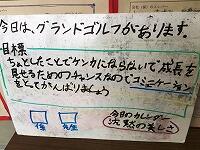 今日は、グランドゴルフがあります。
目標
ちょとしたことでケンカにならないで成長を
見せるためのチャンスなのでコミニケーション
をとってがんばりましょう
今日のカレンダー
沈黙の美しさ